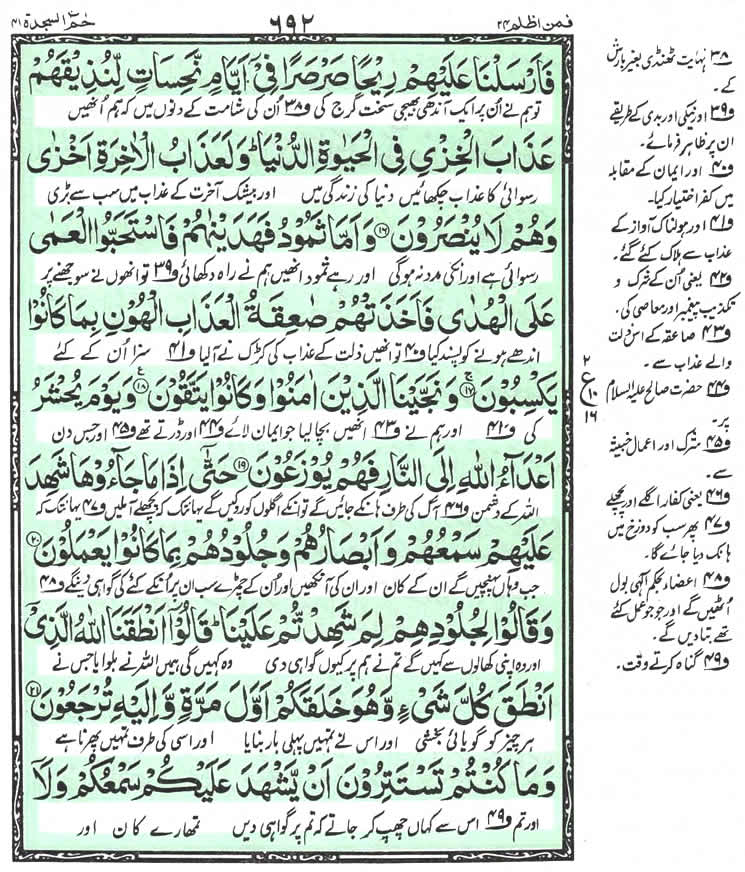 فمن اظلم ۲۴
۶۹۲
حٰمٓ السجدة ۴۱
فَاَرْسَلْنَا عَلَيْهِمْ رِيْحًا صَرْصَرًا فِيْٓ اَيَّامٍ نَّحِسَاتٍ لِّنُذِيْقَهُمْ
تو ہم نے اُن پر ایک آندھی بھیجی سخت گرج کی و۳۸ اُن کی شامت کے دنوں میں کہ ہم اُنھیں
عَذَابَ الْخِزْيِ فِي الْحَيٰوةِ الدُّنْيَا ؕ وَلَعَذَابُ الْاٰخِرَةِ اَخْزٰى
رسوائی کا عذاب چکھائیں دنیا کی زندگی میں اور بیشک آخرت کے عذاب میں سب سے بڑی
وَهُمْ لَا يُنْصَرُوْنَ ۝۱۶ وَاَمَّا ثَمُوْدُ فَهَدَيْنٰهُمْ فَاسْتَحَبُّوا الْعَمٰى
رسوائی ہے اور انکی مدد نہ ہوگی اور رہے ثمود انھیں ہم نے راہ دکھائی و۳۹ تو انھوں نے سوجھنے پر
عَلَى الْهُدٰى فَاَخَذَتْهُمْ صٰعِقَةُ الْعَذَابِ الْهُوْنِ بِمَا كَانُوْا
اندھے ہونے کو پسند کیا و۴۰ تو انھیں ذلت کے عذاب کی کڑک نے آلیا و۴۱ سزا اُن کے کئے
يَكْسِبُوْنَ ۝۱۷ وَنَجَّيْنَا الَّذِيْنَ اٰمَنُوْا وَكَانُوْا يَتَّقُوْنَ ۝۱۸ وَيَوْمَ يُحْشَرُ
کی و۴۲ اور ہم نے و۴۳ انھیں بچا لیا جو ایمان لائے و۴۴ اور ڈرتے تھے و۴۵ اور جس دن
اَعْدَآءُ اللّٰهِ اِلَى النَّارِ فَهُمْ يُوْزَعُوْنَ ۝۱۹ حَتّٰىٓ اِذَا مَا جَآءُوْهَا شَهِدَ
اللہ کے دشمن و۴۶ آگ کی طرف ہانکے جائیں گے تو انکے اگلوں کو روکیں گے یہانتک کہ پچھلے آملیں و۴۷ یہانتک کہ
عَلَيْهِمْ سَمْعُهُمْ وَاَبْصَارُهُمْ وَجُلُوْدُهُمْ بِمَا كَانُوْا يَعْمَلُوْنَ ۝۲۰
جب وہاں پہنچیں گے ان کے کان اور ان کی آنکھیں اور اُن کے چمڑے سب ان پر اُنکے کئے کی گواہی دینگے و۴۸
وَقَالُوْا لِجُلُوْدِهِمْ لِمَ شَهِدْتُّمْ عَلَيْنَا ؕ قَالُوْٓا اَنْطَقَنَا اللّٰهُ الَّذِيْٓ
اور وہ اپنی کھالوں سے کہیں گے تم نے ہم پر کیوں گواہی دی وہ کہیں گی ہمیں اللہ نے بلوایا جس نے
اَنْطَقَ كُلَّ شَيْءٍ وَّهُوَ خَلَقَكُمْ اَوَّلَ مَرَّةٍ وَّاِلَيْهِ تُرْجَعُوْنَ ۝۲۱
ہر چیز کو گویائی بخشی اور اس نے تمہیں پہلی بار بنایا اور اسی کی طرف تمہیں پھرنا ہے
وَمَا كُنْتُمْ تَسْتَتِرُوْنَ اَنْ يَّشْهَدَ عَلَيْكُمْ سَمْعُكُمْ وَلَآ
اور تم و۴۹ اس سے کہاں چھپ کر جاتے کہ تم پر گواہی دیں تمھارے کان اور
و۳۸ نہایت ٹھنڈی بغیر بارش
کے۔
و۳۹ اور نیکی اور بدی کے طریقے
ان پر ظاہر فرمائے۔
و۴۰ اور ایمان کے مقابلہ
میں کفر اختیار کیا۔
و۴۱ اور ہولناک آواز کے
عذاب سے ہلاک کئے گئے۔
و۴۲ یعنی اُن کے شرک و
تکذیب پیغمبر اور معاصی کی۔
و۴۳ صاعقہ کے اس ذلت
والے عذاب سے۔
و۴۴ حضرت صالح علیہ السلام
پر۔
و۴۵ شرک اور اعمال خبیثہ
سے۔
و۴۶ یعنی کفار اگلے اور پچھلے
و۴۷ پھر سب کو دوزخ میں
ہانک دیا جائے گا۔
و۴۸ اعضاء بحکم الٰہی بول
اُٹھیں گے اور جو جو عمل کئے
تھے بتا دیں گے۔
و۴۹ گناہ کرتے وقت۔
۲
ع
۱۰
۱۶